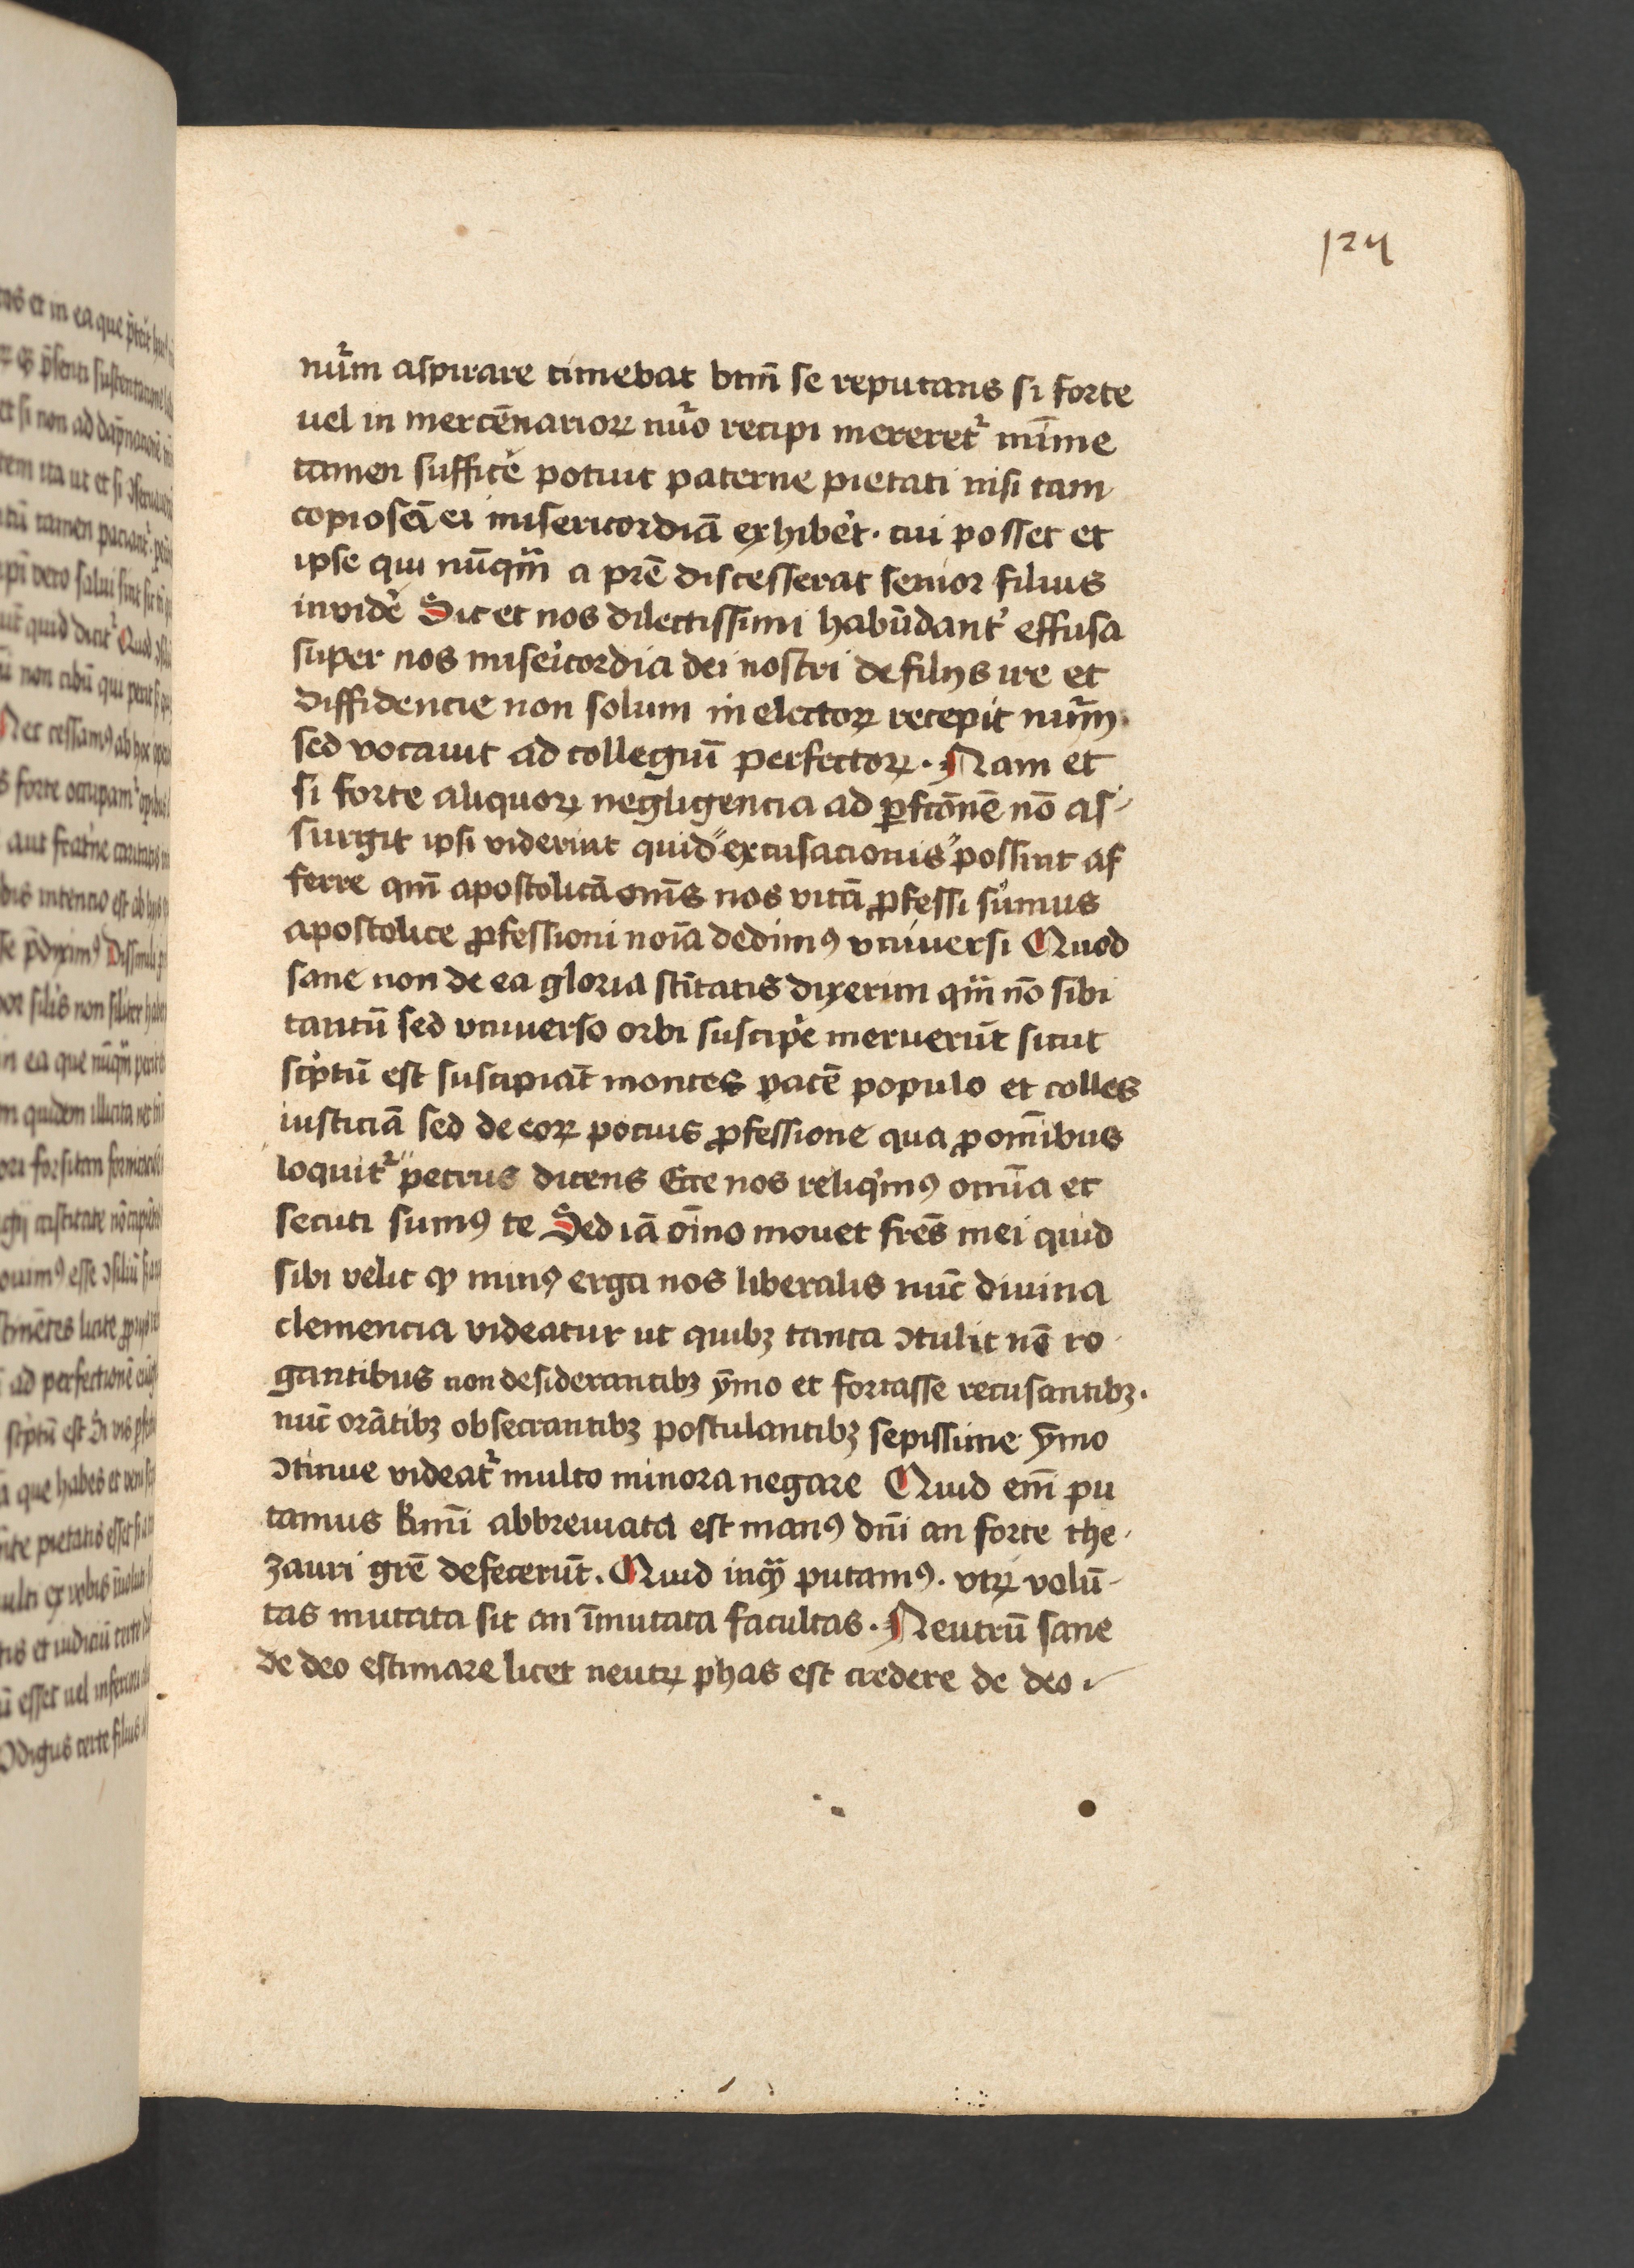 124
nu᷑m aspirare timebat btm̄ se reputans si forte
uel in mercēnarioꝝ nu᷑o recipi mereret᷑ mīme
tamen sufficē potuit paterne pietati nisi tam
copiosā ei misericordiā exhibet᷑. cui posset et
ipse qui nūqꝫ a prē discesserat senior filius
invidē Sic et nos dilectissimi habūdant᷑ effusa
super nos misericordia dei nostri de filijs ire et
diffidencie non solum in electoꝝ recepit nu᷑m.
sed vocauit ad collegiū perfectoꝝ. Nam et
si forte aliquoꝝ negligencia ad ꝑfcōnē nō as-
surgit ipsi viderint quid excusacionis possint af
ferre qm̄ apostolicā om̄s nos vitā ꝓfessi sumus
apostolice ꝓfessioni noīa dedimꝰ vniuersi Quod
sane non de ea gloria sc̄itatis dixerim qm̄ nō sibi
tantū sed vniuerso orbi suscipe meruerūt sicut
scptū est suscipiāt montes pacē populo et colles
iusticiā sed de eoꝝ pocius ꝓfessione qua ꝓ omībus
loquit᷑ petrus dicens Ecce nos reliqimꝰ omīa et
secuti sumꝰ te Sed iā oīno mouet frēs mei quid
sibi velit ꝙ minꝰ erga nos liberalis nūc diuina
clemencia videatur ut quibꝫ tanta ꝯtulit nō ro
gantibus non desiderantibꝫ ymo et fortasse recusantibꝫ.
nūc orātibꝫ obsecrantibꝫ postulantibꝫ sepissime ymo
ꝯtinue videat᷑ multo minora negare Quid em̄ pu
tamus kmī abbreuiata est manꝰ dn̄i an forte the-
zauri grē defecerūt. Quid inqꝫ putamꝰ. vtꝝ volū-
tas mutata sit an īmutata facultas. Neutrū sane
de deo estimare licet neutꝝ phas est credere de deo.